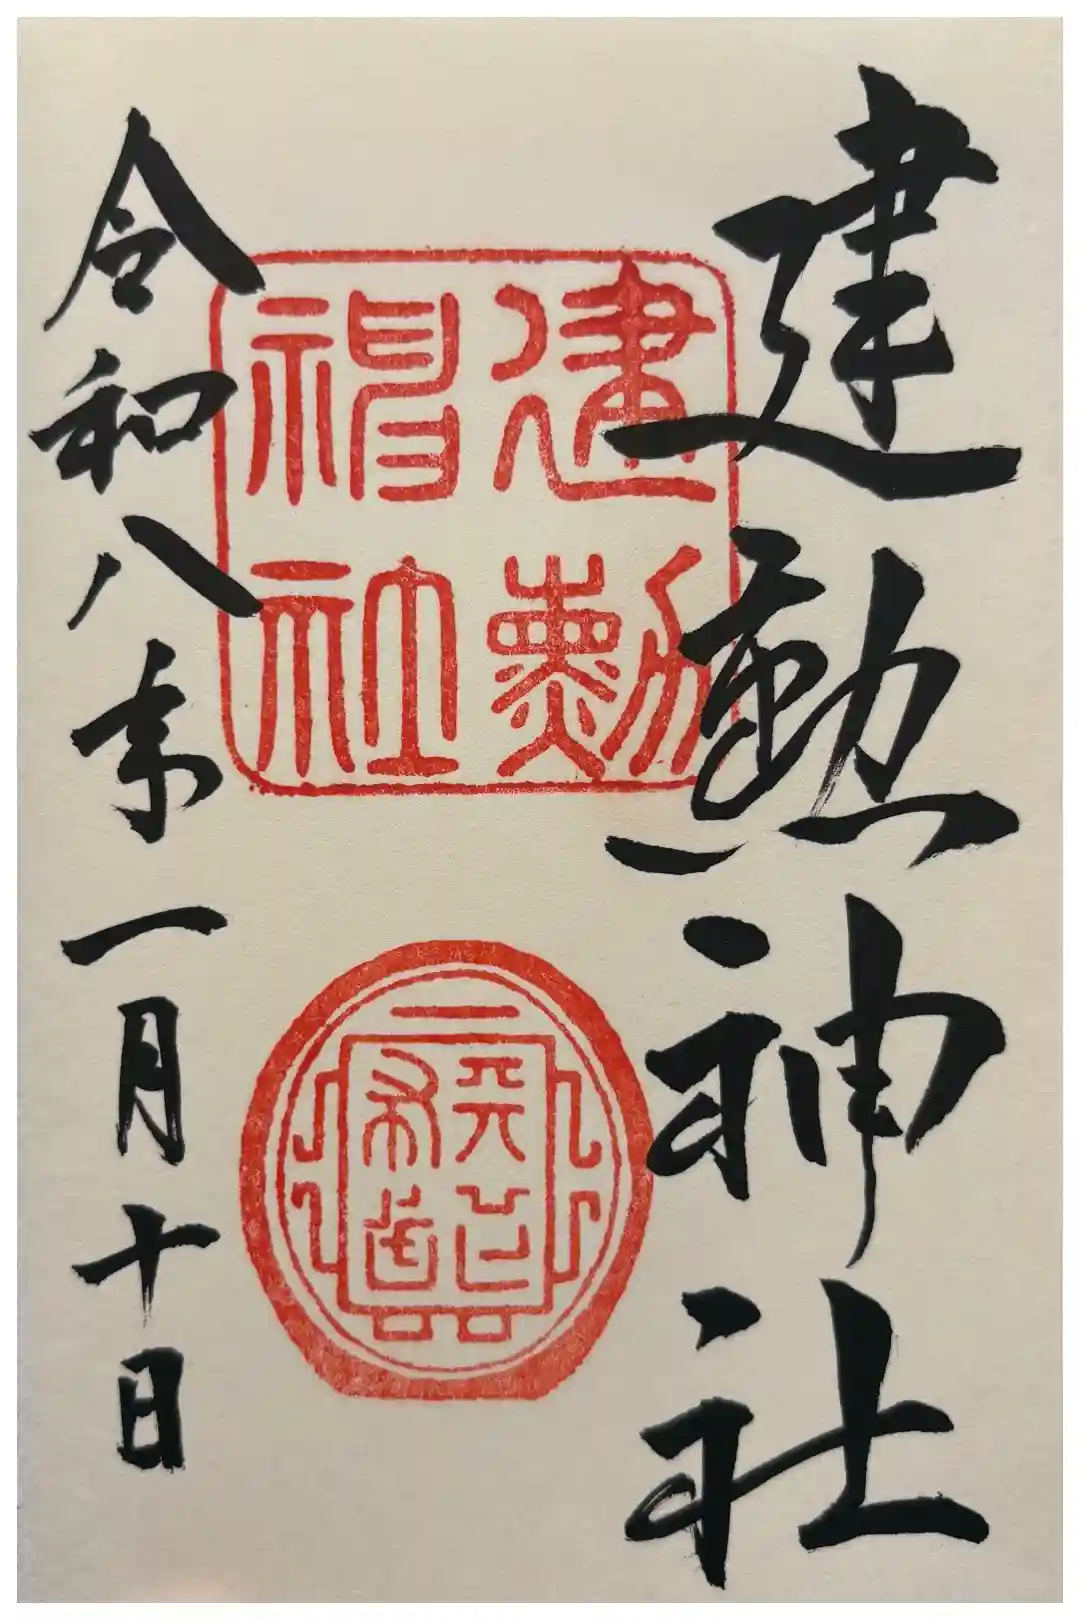 建勲神社
建勲
神社
令和八年一月十日